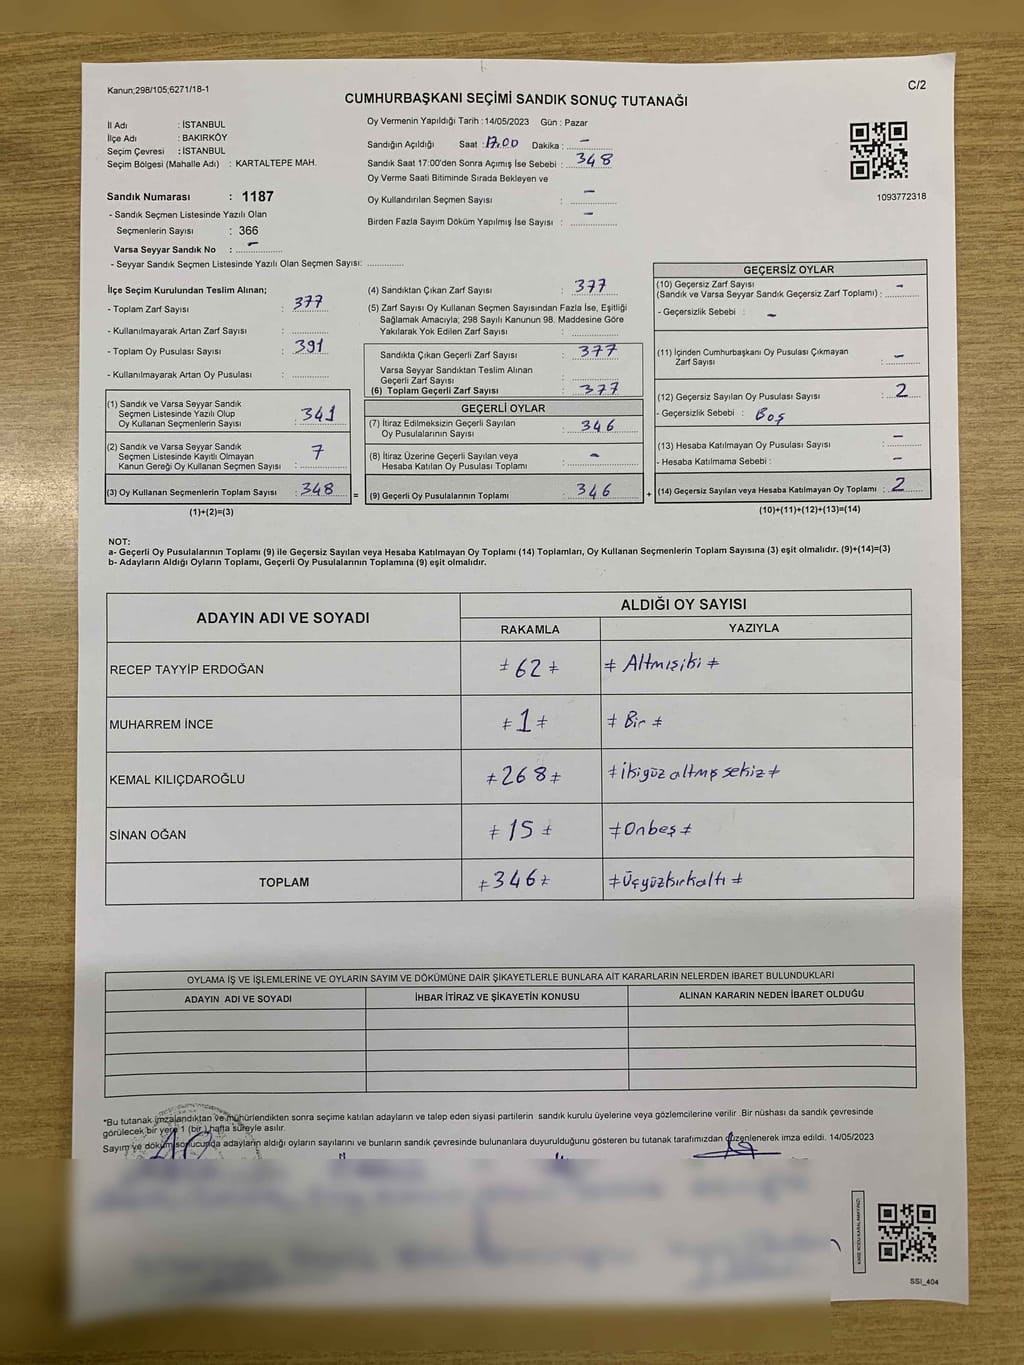 Kanun;298/105;6271/18-1
C/2
CUMHURBAŞKANI SEÇİMİ SANDIK SONUÇ TUTANAĞI
İl Adı : İSTANBUL
İlçe Adı : BAKIRKÖY
Seçim Çevresi : İSTANBUL
Seçim Bölgesi (Mahalle Adı) : KARTALTEPE MAH.
Oy Vermenin Yapıldığı Tarih :14/05/2023 Gün : Pazar
Sandığın Açıldığı Saat :17.00 Dakika : -
Sandık Saat 17:00'den Sonra Açımış İse Sebebi : 348
Oy Verme Saati Bitiminde Sırada Bekleyen ve
Oy Kullandırılan Seçmen Sayısı : -
Birden Fazla Sayım Döküm Yapılmış İse Sayısı : -
1093772318
Sandık Numarası : 1187
- Sandık Seçmen Listesinde Yazılı Olan
Seçmenlerin Sayısı : 366
Varsa Seyyar Sandık No : -
- Seyyar Sandık Seçmen Listesinde Yazılı Olan Seçmen Sayısı:
İlçe Seçim Kurulundan Teslim Alınan;
- Toplam Zarf Sayısı : 377
- Kullanılmayarak Artan Zarf Sayısı :
- Toplam Oy Pusulası Sayısı : 391
- Kullanılmayarak Artan Oy Pusulası :
(1) Sandık ve Varsa Seyyar Sandık
Seçmen Listesinde Yazılı Olup
Oy Kullanan Seçmenlerin Sayısı : 341
(2) Sandık ve Varsa Seyyar Sandık
Seçmen Listesinde Kayıtlı Olmayan
Kanun Gereği Oy Kullanan Seçmen Sayısı : 7
(3) Oy Kullanan Seçmenlerin Toplam Sayısı : 348
(1)+(2)=(3)
(4) Sandıktan Çıkan Zarf Sayısı : 377
(5) Zarf Sayısı Oy Kullanan Seçmen Sayısından Fazla İse, Eşitliği
Sağlamak Amacıyla; 298 Sayılı Kanunun 98. Maddesine Göre
Yakılarak Yok Edilen Zarf Sayısı :
Sandıkta Çıkan Geçerli Zarf Sayısı : 377
Varsa Seyyar Sandıktan Teslim Alınan
Geçerli Zarf Sayısı :
(6) Toplam Geçerli Zarf Sayısı : 377
GEÇERLİ OYLAR
(7) İtiraz Edilmeksizin Geçerli Sayılan
Oy Pusulalarının Sayısı : 346
(8) İtiraz Üzerine Geçerli Sayılan veya
Hesaba Katılan Oy Pusulası Toplamı : -
(9) Geçerli Oy Pusulalarının Toplamı : 346
=
+
GEÇERSİZ OYLAR
(10) Geçersiz Zarf Sayısı
(Sandık ve Varsa Seyyar Sandık Geçersiz Zarf Toplamı) : -
- Geçersizlik Sebebi : -
(11) İçinden Cumhurbaşkanı Oy Pusulası Çıkmayan
Zarf Sayısı : -
(12) Geçersiz Sayılan Oy Pusulası Sayısı : 2
- Geçersizlik Sebebi : Boş
(13) Hesaba Katılmayan Oy Pusulası Sayısı : -
- Hesaba Katılmama Sebebi : -
(14) Geçersiz Sayılan veya Hesaba Katılmayan Oy Toplamı : 2
(10)+(11)+(12)+(13)=(14)
NOT:
a- Geçerli Oy Pusulalarının Toplamı (9) ile Geçersiz Sayılan veya Hesaba Katılmayan Oy Toplamı (14) Toplamları, Oy Kullanan Seçmenlerin Toplam Sayısına (3) eşit olmalıdır. (9)+(14)=(3)
b- Adayların Aldığı Oyların Toplamı, Geçerli Oy Pusulalarının Toplamına (9) eşit olmalıdır.
ADAYIN ADI VE SOYADI
ALDIĞI OY SAYISI
RAKAMLA YAZIYLA
RECEP TAYYİP ERDOĞAN ≠ 62 ≠ ≠ Altmışiki ≠
MUHARREM İNCE ≠ 1 ≠ ≠ Bir ≠
KEMAL KILIÇDAROĞLU ≠ 268 ≠ ≠ ikiyüz altmış sekiz ≠
SİNAN OĞAN ≠ 15 ≠ ≠ Onbeş ≠
TOPLAM ≠ 346 ≠ ≠ Üçyüzkırkaltı ≠
OYLAMA İŞ VE İŞLEMLERİNE VE OYLARIN SAYIM VE DÖKÜMÜNE DAİR ŞİKAYETLERLE BUNLARA AİT KARARLARIN NELERDEN İBARET BULUNDUKLARI
ADAYIN ADI VE SOYADI İHBAR İTİRAZ VE ŞİKAYETİN KONUSU ALINAN KARARIN NEDEN İBARET OLDUĞU
*Bu tutanak imzalandıktan ve mühürlendikten sonra seçime katılan adayların ve talep eden siyasi partilerin sandık kurulu üyelerine veya gözlemcilerine verilir .Bir nüshası da sandık çevresinde
görülecek bir yere 1 (bir ) hafta süreyle asılır.
Sayım ve döküm sonucunda adayların aldığı oyların sayılarını ve bunların sandık çevresinde bulunanlara duyurulduğunu gösteren bu tutanak tarafımızdan düzenlenerek imza edildi. 14/05/2023
SSI_404